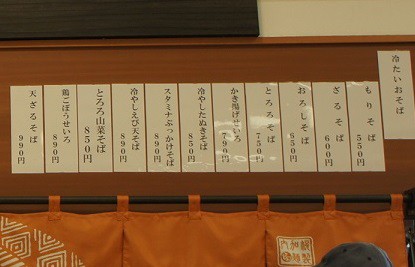 冷たいおそば
もりそば
550円
ざるそば
600円
おろしそば
650円
とろろそば
750円
かき揚げせいろ
790円
冷やしたぬきそば
850円
スタミナぶっかけそば
890円
冷やしえび天そば
890円
とろろ山菜そば
850円
鶏ごぼうせいろ
890円
天ざるそば
990円